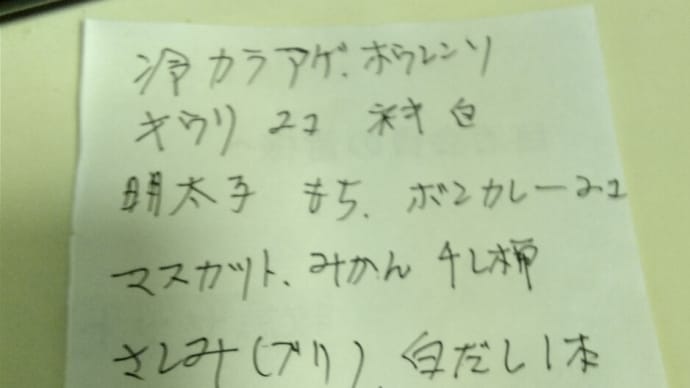 冷カラアゲ、ホウレンソ
キウリ 2コ
明太子 もち、ボンカレー2コ
マスカット、みかん 干し柿
さしみ(ブリ)、白だし1本